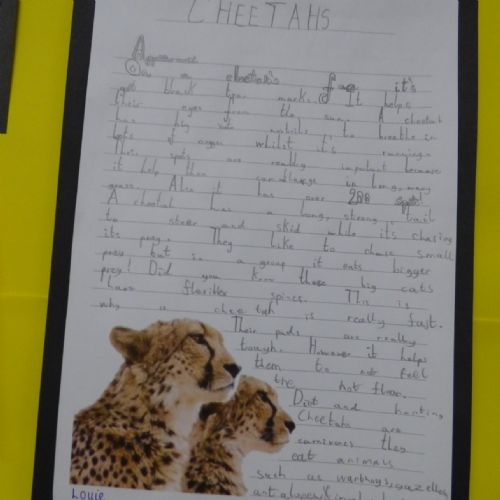 CHEETAHS
Appearance
On a cheetah's face it's
got black tear marks. It helps
their eyes from the sun. A cheetah
has big nostrils to breathe in
lots of oxygen whilst it's running.
Their spots are really important because
it help them camouflage in long,
grass. Also it has over 200 spots!
A cheetah has a long, strong tail
to steer and skid while its chasing
its prey. They like to chase small
prey but in a group it eats bigger
prey! Did you know these big cats
have flexible spines. This is
why a cheetah is really fast.
Their pads are really
tough. However it helps
them to not feel
the hot floor.
Diet and hunting
Cheetahs are
carnivores they
eat animals
such as warthogs, gazelles,
Louie